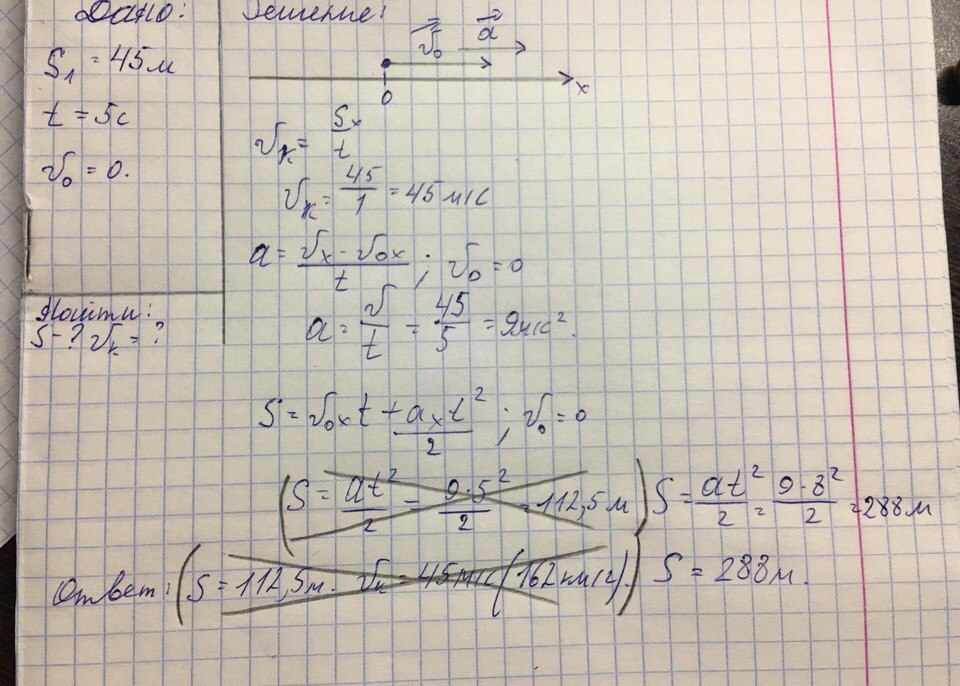 Дано:
S₁ = 45м
t = 5с
v₀ = 0.
Найти:
S-? vₖ = ?
Решение:
v⃗₀ a⃗
0 x
vₖ = Sₓ/t
vₖ = 45/1 = 45 м/с
a = (vₓ - v₀ₓ)/t ; v₀ = 0
a = v/t = 45/5 = 9м/с².
S = v₀ₓt + aₓt²/2 ; v₀ = 0
(S = at²/2 = 9·5²/2 = 112,5 м) S = at²/2 = 9·8²/2 = 288м
Ответ: (S = 112,5м. vₖ = 45м/с (162 км/г).) S = 288м.